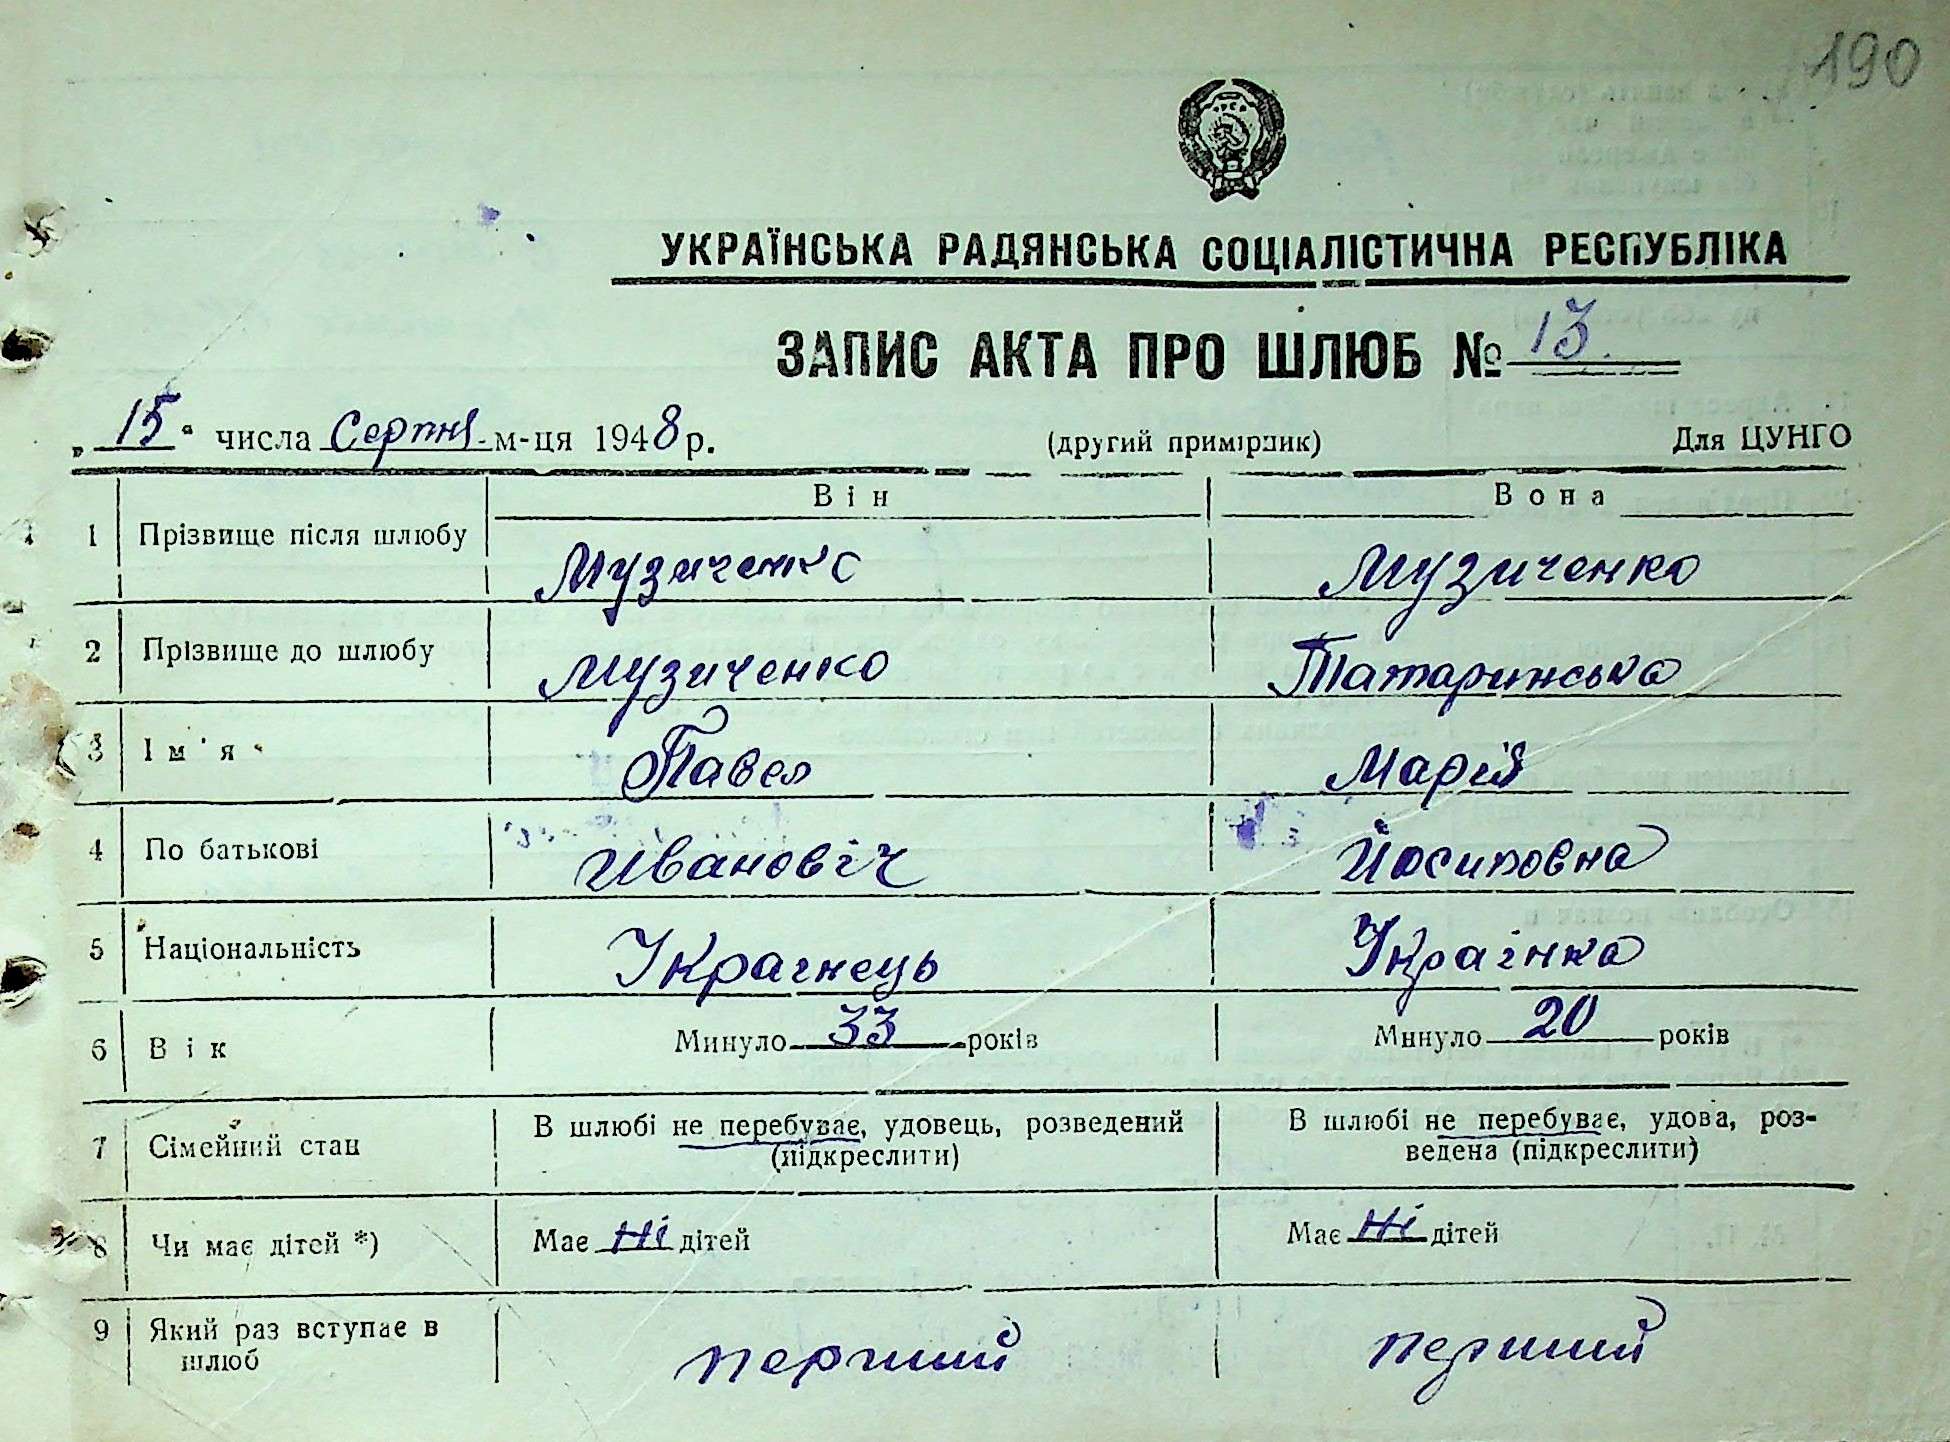 190
УКРАЇНСЬКА РАДЯНСЬКА СОЦІАЛІСТИЧНА РЕСПУБЛІКА
ЗАПИС АКТА ПРО ШЛЮБ № 13.
„15“ числа Серпня м-ця 1948 р. (другий примірник) Для ЦУНГО
Він Вона
1 Прізвище після шлюбу Музиченко Музиченко
2 Прізвище до шлюбу Музиченко Татаринська
3 Ім'я Павел Марія
4 По батькові Ивановіч Йосиповна
5 Національність Украінець Украінка
6 Вік Минуло 33 років Минуло 20 років
7 Сімейний стан В шлюбі не перебуває, удовець, розведений (підкреслити) В шлюбі не перебуває, удова, роз-
ведена (підкреслити)
8 Чи має дітей *) Має Ні дітей Має Ні дітей
9 Який раз вступає в шлюб перший перший